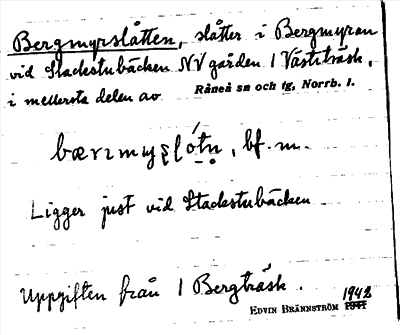 Bergmyrslåtten, slåtter i Bergmyran
vid Stackstubäcken NV gården 1 Västiträsk,
i mellersta delen av Råneå sn och tg, Norrb. l.
bf. m.
Ligger just vid Stackstubäcken
Uppgiften från 1 Bergträsk.
EDVIN BRÄNNSTRÖM 1941 1942